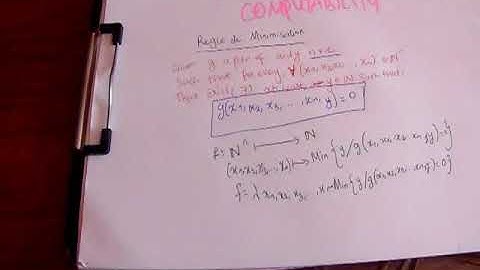 COMPUTABILITY
Regle de Minimisation
Given g a p.r. of arity n+1
such that for every ∀ (x1, x2, ..., xn) ∈ N^n
There exists y ∈ N such that
g(x1, x2, x3, ..., xn, y) = 0
f: N^n → N
(x1, x2, x3, ..., xn) ↦ Min{y / g(x1, x2, x3, ..., xn, y) = 0}
f = λ x1, x2, x3, ..., xn. Min{y/g(x1, x2, x3, ..., xn, y) = 0}